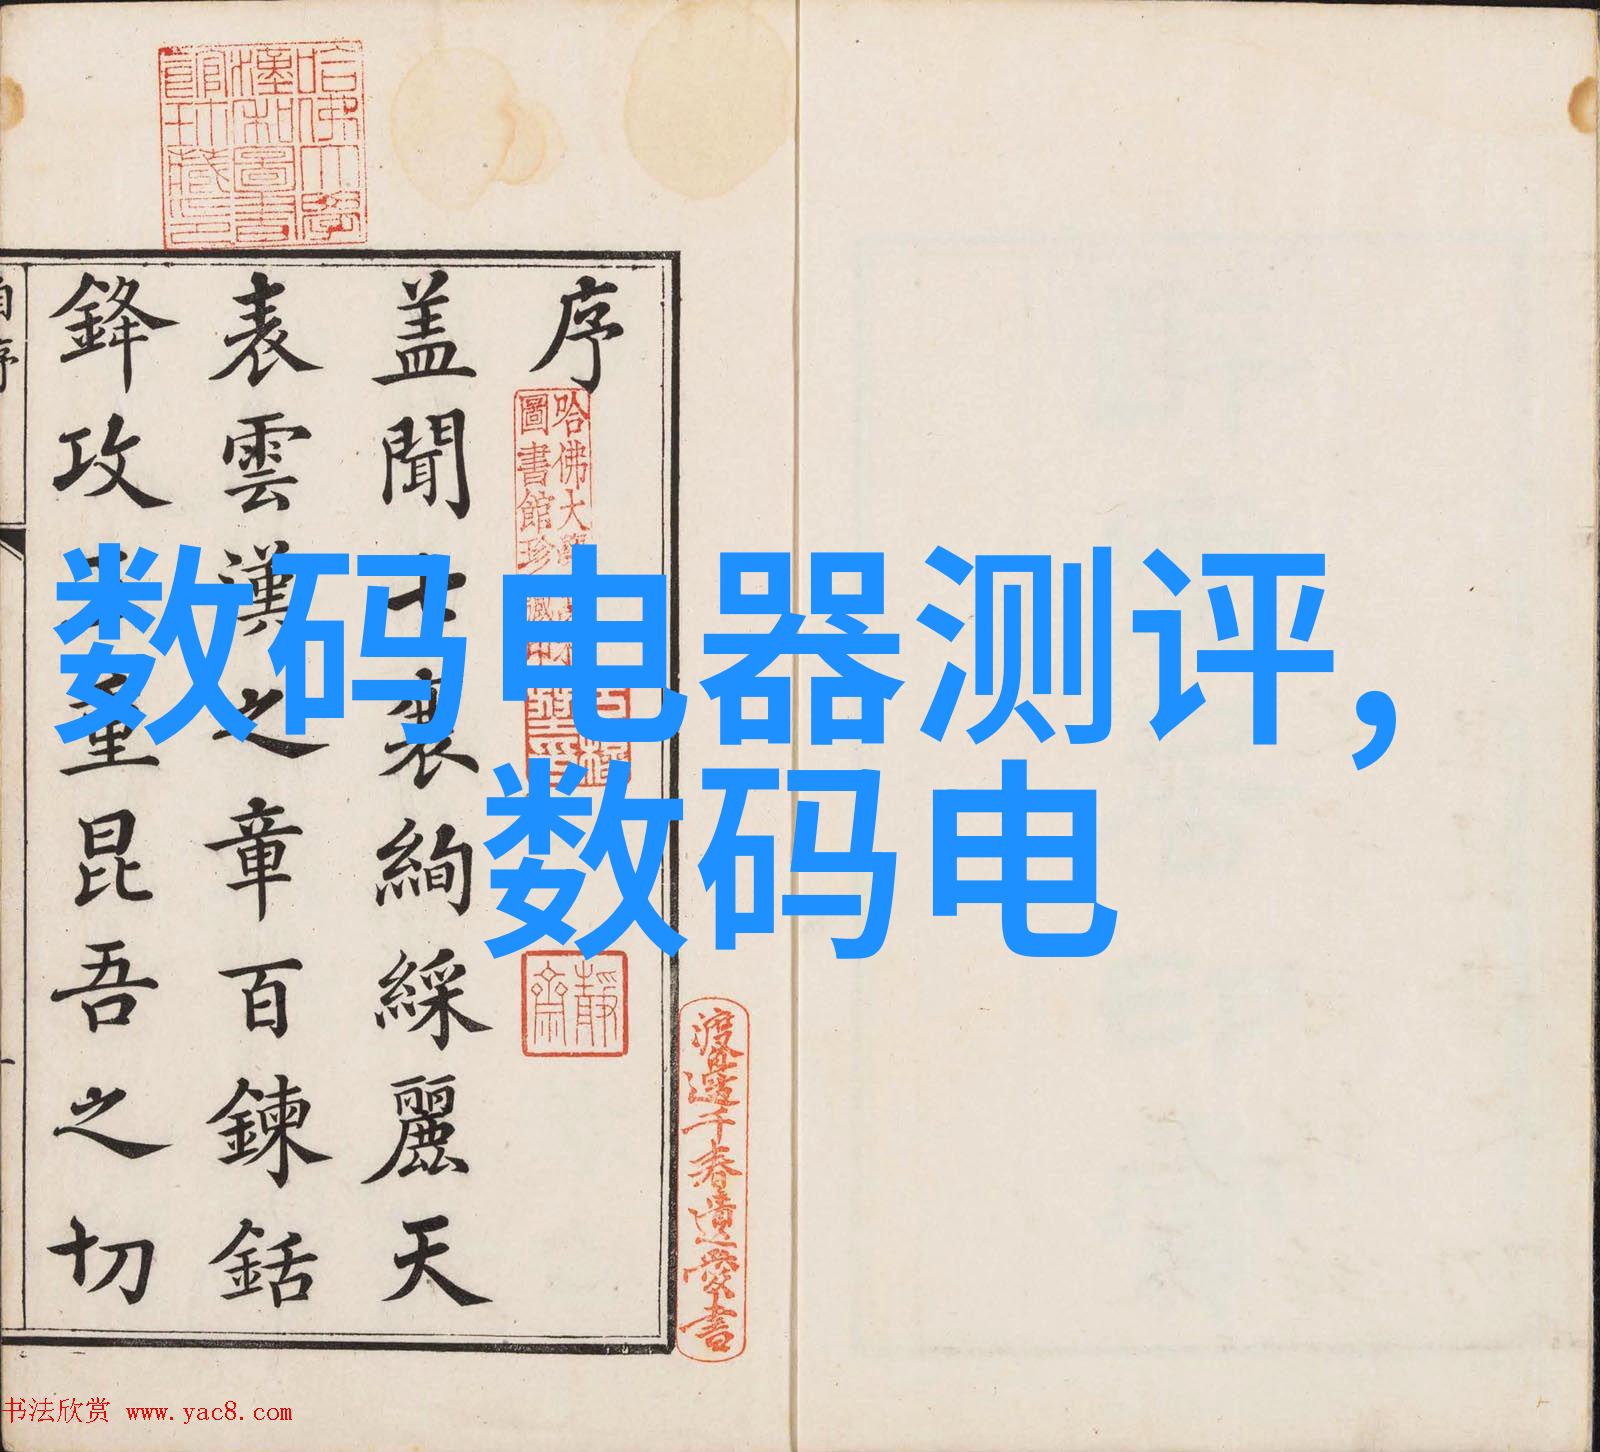 哈佛大學
漢和圖書
館珍藏印
序
哈佛大
圖書館珍
蓋聞七襄絢綵麗天
表雲漢之章百鍊銛
鋒攻玉重昆吾之切
自序
靜齋
渡邊千春遺愛書
数码电器测评,
数码电
书法欣赏 www.yac8.com